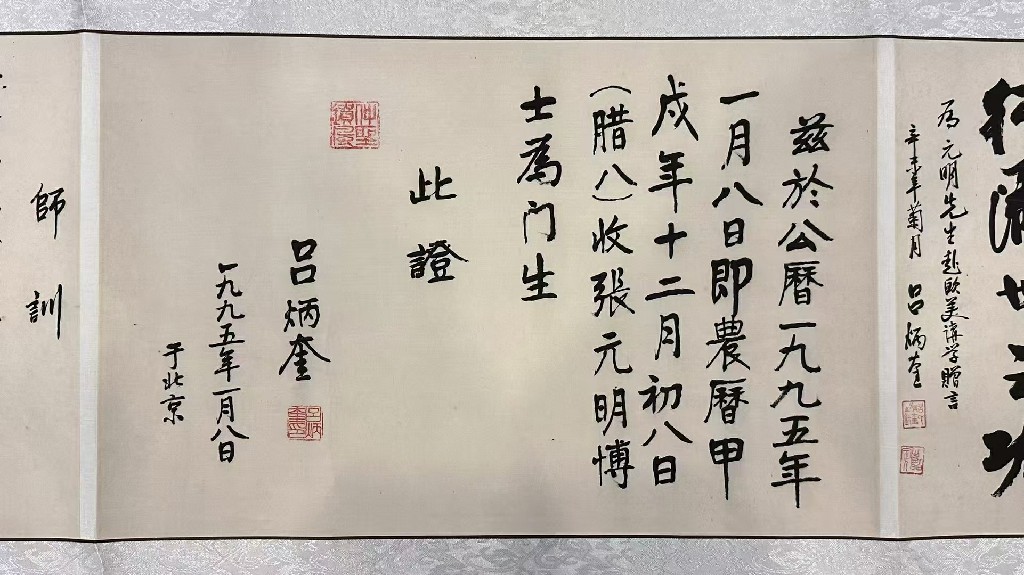 為元明先生赴欧美講学贈言
辛未年菊月 吕炳奎
兹於公曆一九九五年
一月八日即農曆甲
戌年十二月初八日
(腊八)收張元明博
士為门生
此證
吕炳奎
一九九五年一月八日
于北京
師訓